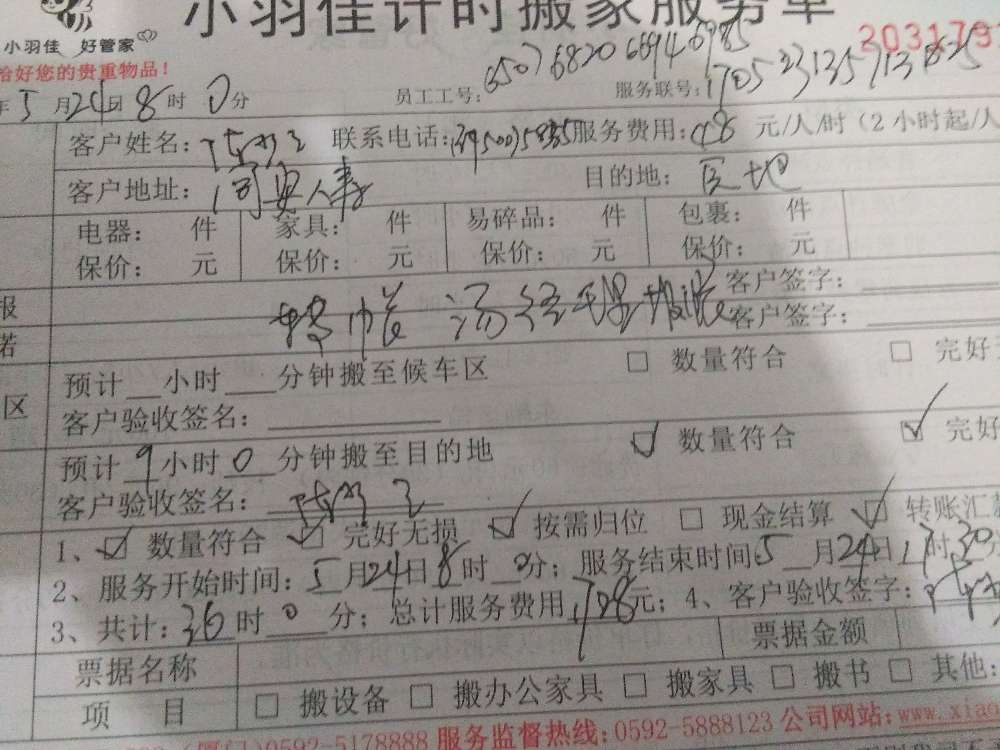 小羽佳计时搬家服务单
小羽佳 好管家
203179
恰好您的贵重物品！
年5月24日8时0分 员工工号: 6507 6820 6694 6985 服务联号:
客户姓名: 联系电话: 服务费用:48元/人/时（2小时起/人
客户地址:同安人事 目的地:
电器: 件 家具: 件 易碎品: 件 包裹: 件
保价: 元 保价: 元 保价: 元 保价: 元
报 客户签字:
若 客户签字:
预计 小时 分钟搬至候车区 □ 数量符合 □ 完好
区
客户验收签名:
预计9小时0分钟搬至目的地 ☑ 数量符合 ☑ 完好
客户验收签名:
1、☑ 数量符合 ☑ 完好无损 ☑ 按需归位 □ 现金结算 ☑ 转账汇
2、服务开始时间:5月24日8时0分；服务结束时间:5月24日17时30
3、共计:36时0分；总计服务费用1728元；4、客户验收签字:
票据名称 票据金额
项 目 □ 搬设备 □ 搬办公家具 □ 搬家具 □ 搬书 □ 其他:
0592-5178888 服务监督热线:0592-5888123 公司网站:www.xiao